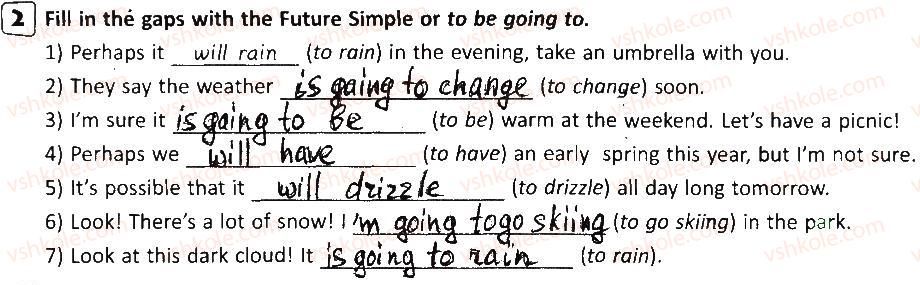 2 Fill in the gaps with the Future Simple or to be going to.
1) Perhaps it will rain (to rain) in the evening, take an umbrella with you.
2) They say the weather is going to change (to change) soon.
3) I'm sure it is going to be (to be) warm at the weekend. Let's have a picnic!
4) Perhaps we will have (to have) an early spring this year, but I'm not sure.
5) It's possible that it will drizzle (to drizzle) all day long tomorrow.
6) Look! There's a lot of snow! I 'm going to go skiing (to go skiing) in the park.
7) Look at this dark cloud! It is going to rain (to rain).